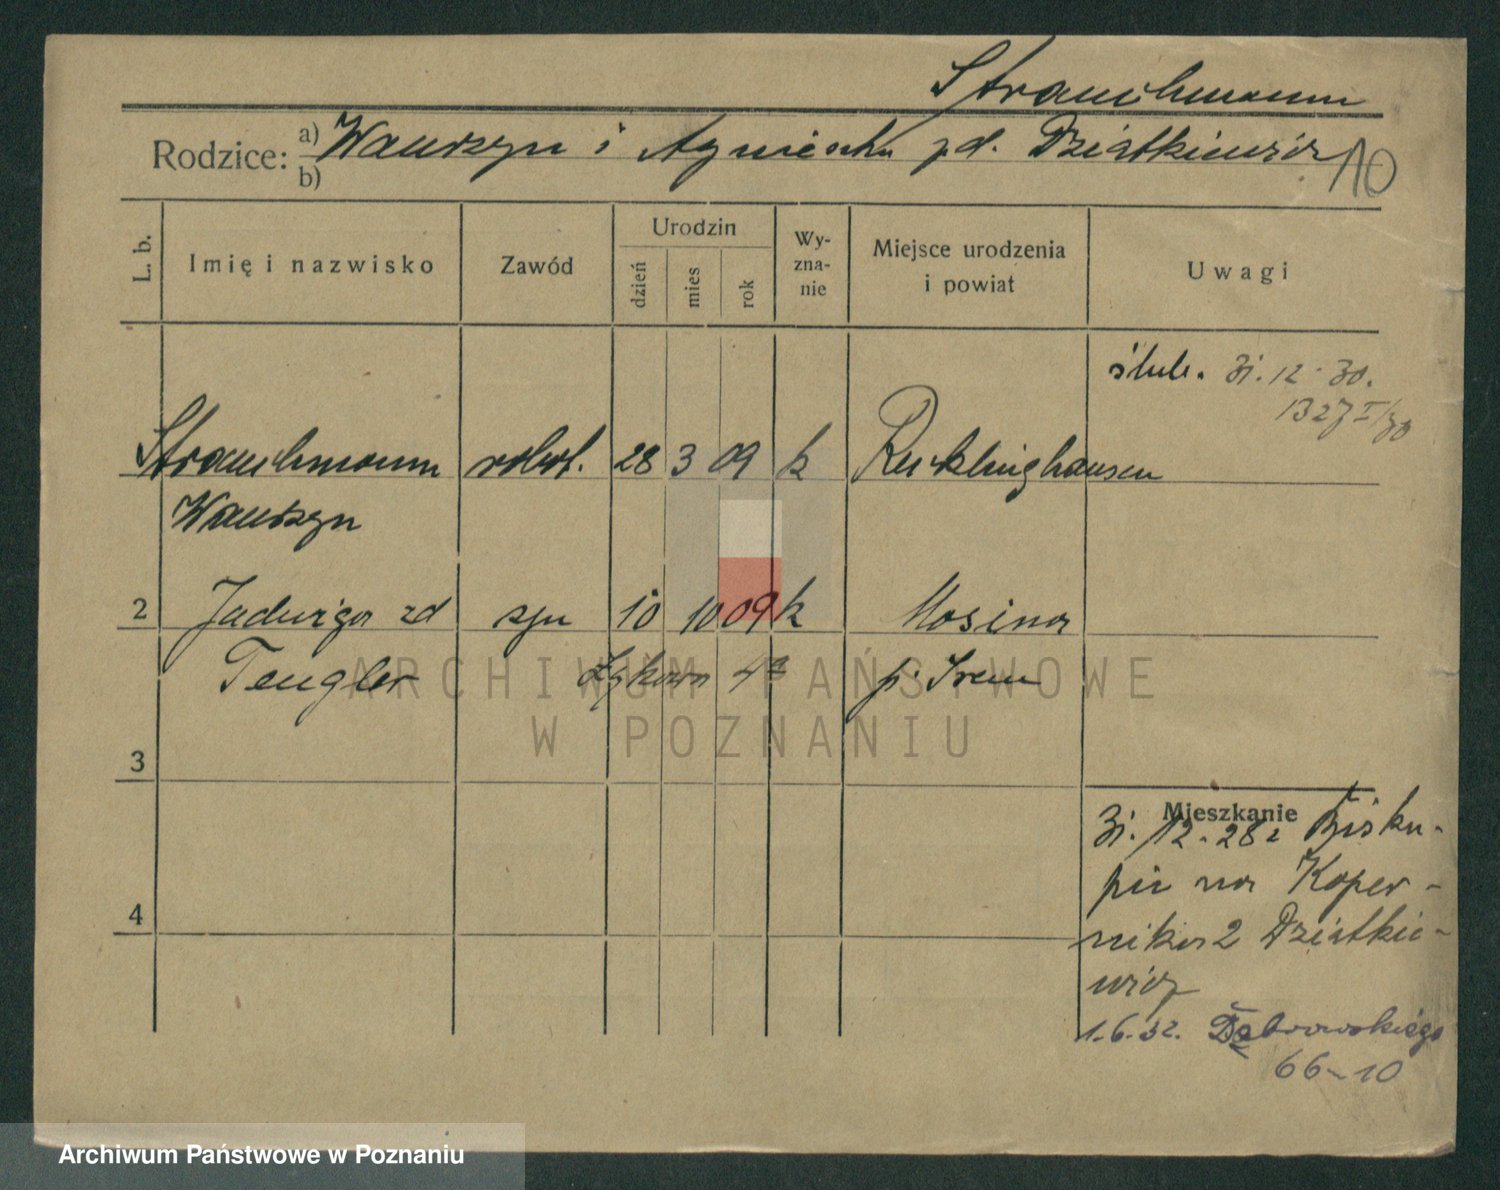 Strauchmann
Rodzice: a) Wawrzyn i Agnieszka zd. Dziatkiewicz
b)
10
L. b.
Imię i nazwisko
Zawód
Urodzin
dzień
mies
rok
Wy-
zna-
nie
Miejsce urodzenia
i powiat
Uwagi
ślub. 31.12.30.
1327 I/30
Strauchmann robot. 28 3 09 k Recklinghausen
Wawrzyn
2 Jadwiga zd 10 10 09 k Mosina
Tengler Łąkowa 4a p. Śrem
3
Mieszkanie
31.12.28 z Bisku-
pic na Koper-
nika 2 Dziatkie-
wicz
4
1.6.32. Dąbrowskiego
66-10
ARCHIWUM PAŃSTWOWE
W POZNANIU
Archiwum Państwowe w Poznaniu